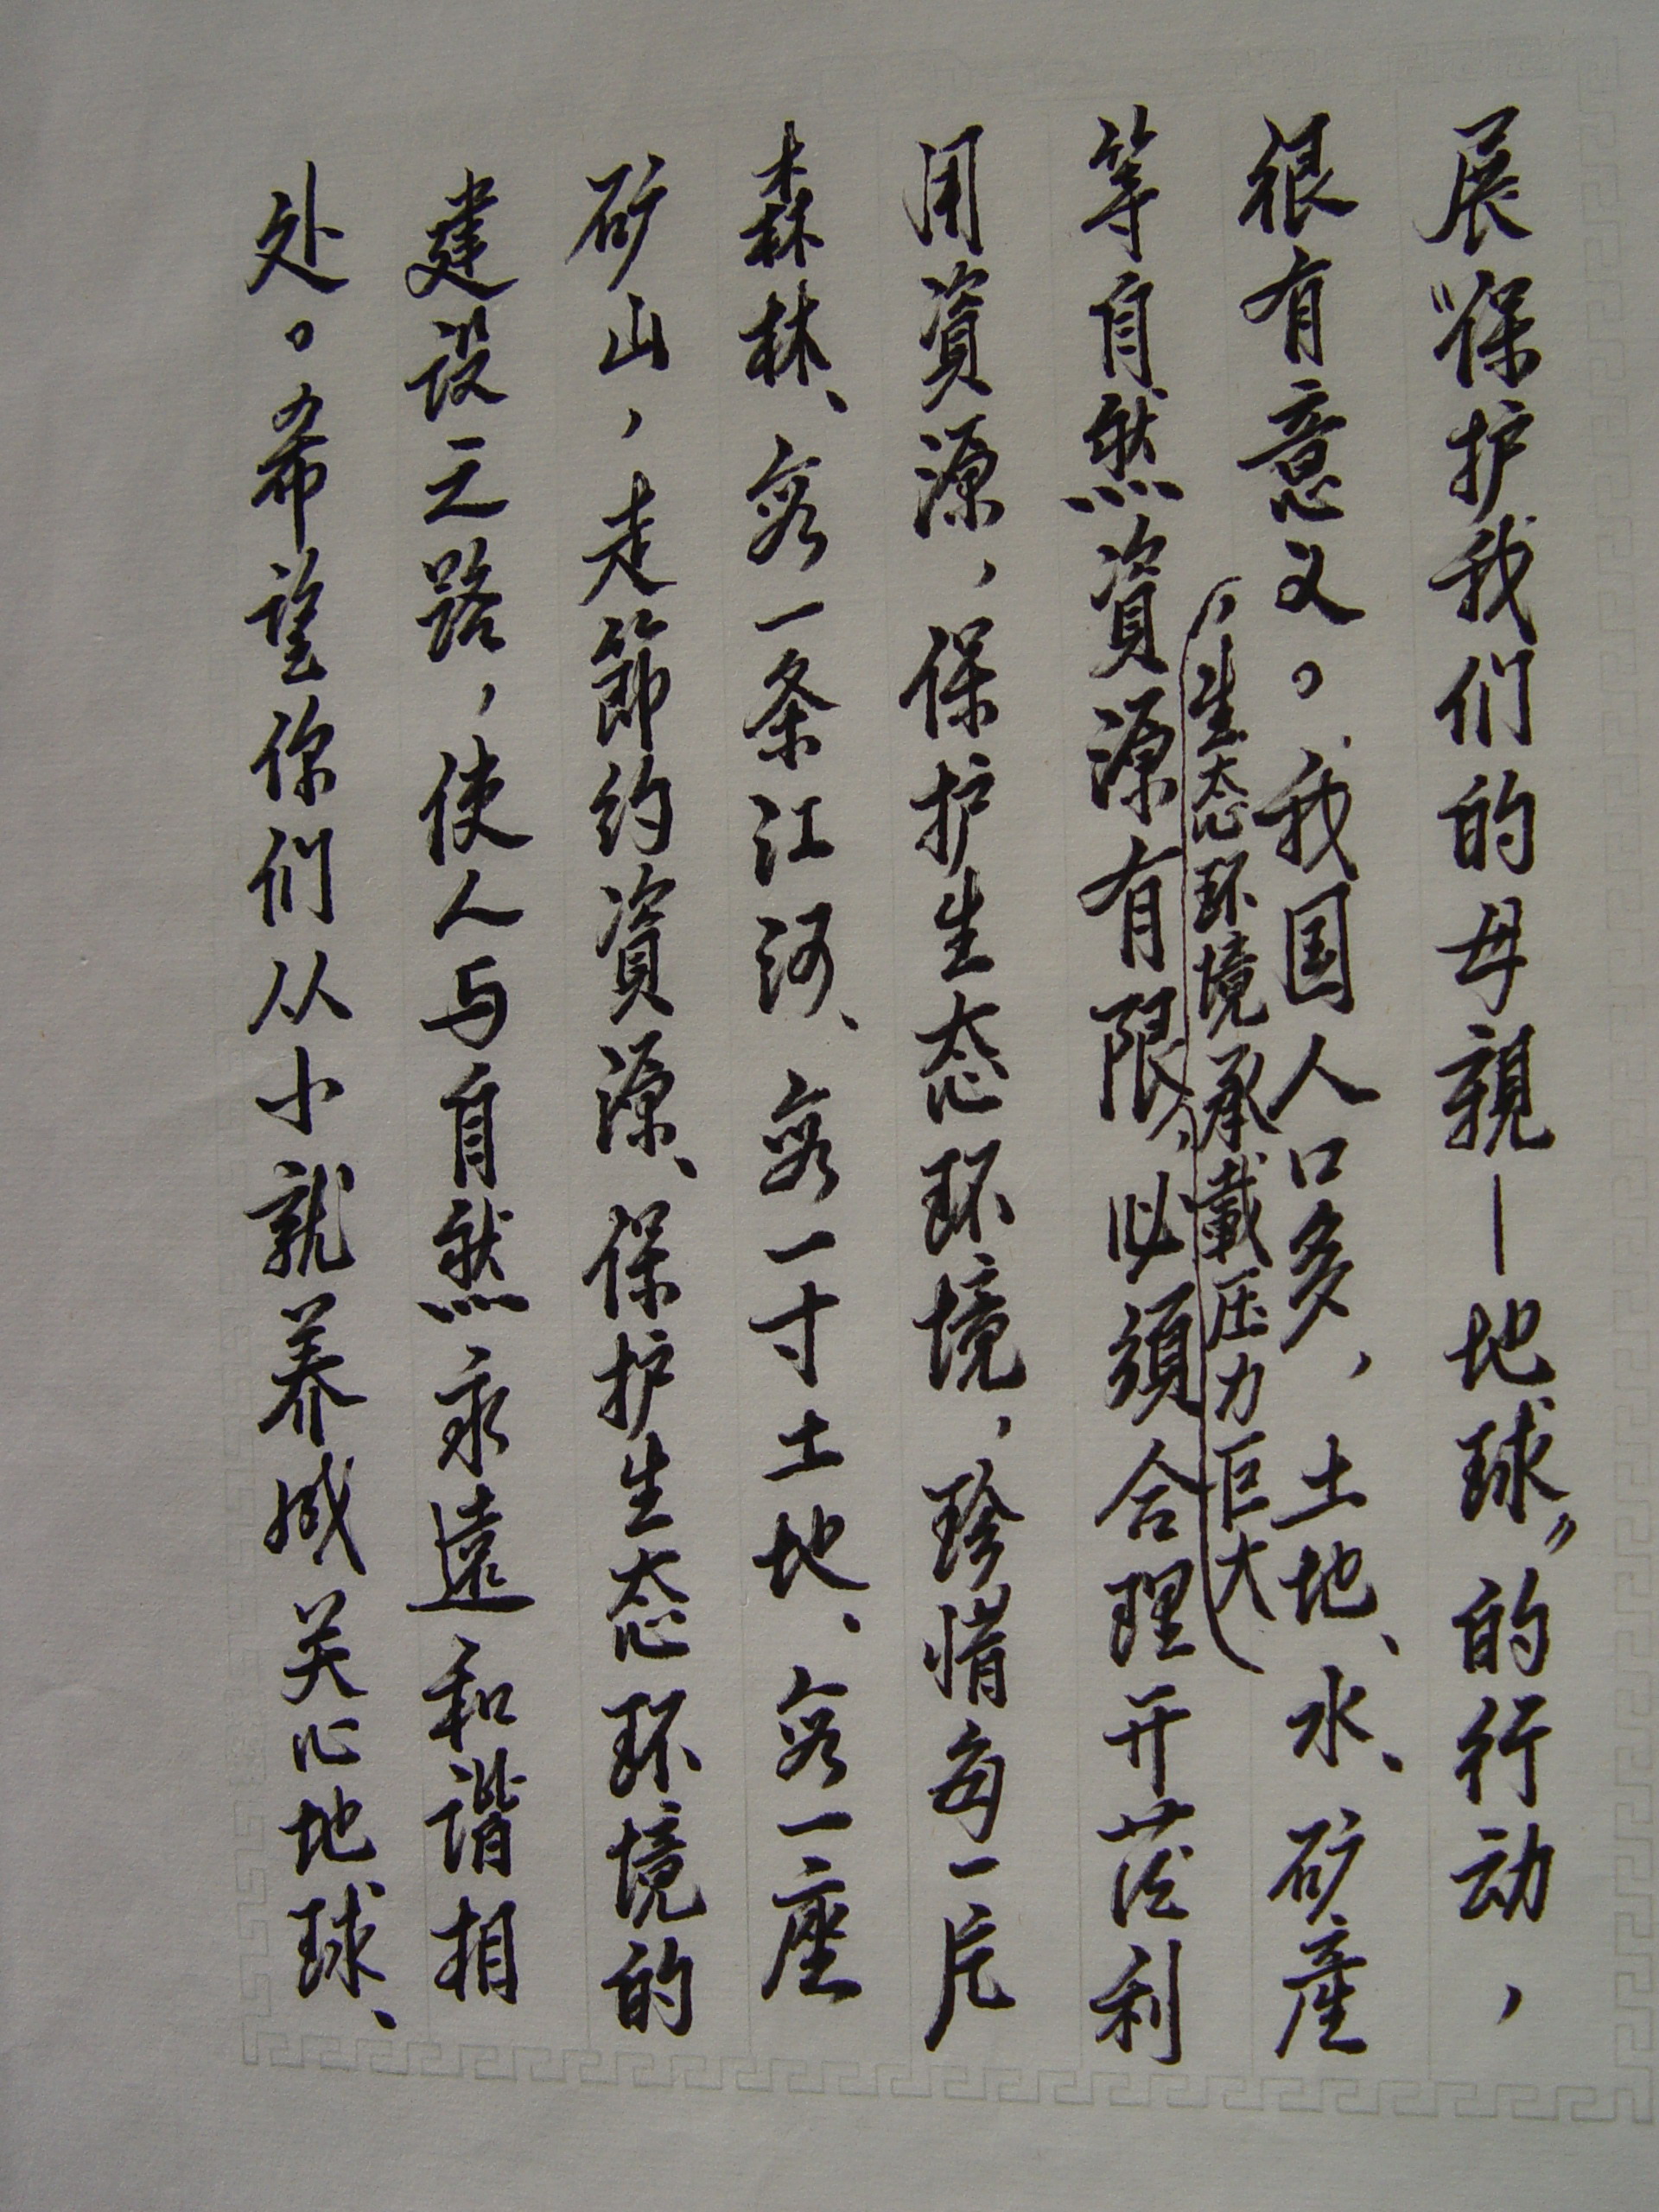 展“保护我们的母親—地球”的行动，
很有意义。我国人口多，土地、水、矿産
等自然資源有限，生态环境承載压力巨大，必須合理开发利
用資源，保护生态环境，珍惜每一片
森林、每一条江河、每一寸土地、每一座
矿山，走節约資源、保护生态环境的
建设之路，使人与自然永遠和谐相
处。希望你们从小就养成关心地球、